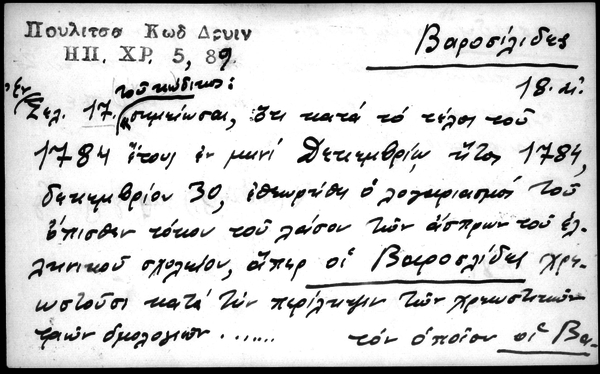 Πουλιτσα Κωδ Δρυιν
ΗΠ. ΧΡ. 5, 89
Βαροσίλιδες
18. αἰ.
ἐν Σελ. 17. τοῦ κώδικος: σημείωσαι, ὅτι κατὰ τὸ τέλος τοῦ
1784 ἔτους ἐν μηνὶ Δεκεμβρίῳ ἤτοι 1784,
δεκεμβρίου 30, ἐθεωρήθη ὁ λογαριασμὸς τοῦ
ὄπισθεν τόκου τοῦ λάσου τῶν ἄσπρων τοῦ ἑλ-
ληνικοῦ σχολείου, ἅπερ οἱ Βαροσλίδες χρε-
ωστοῦσι κατὰ τὴν περίληψιν τῶν χρεωστικῶν
τριῶν ὁμολογιῶν ....... τὸν ὁποῖον οἱ Βα-